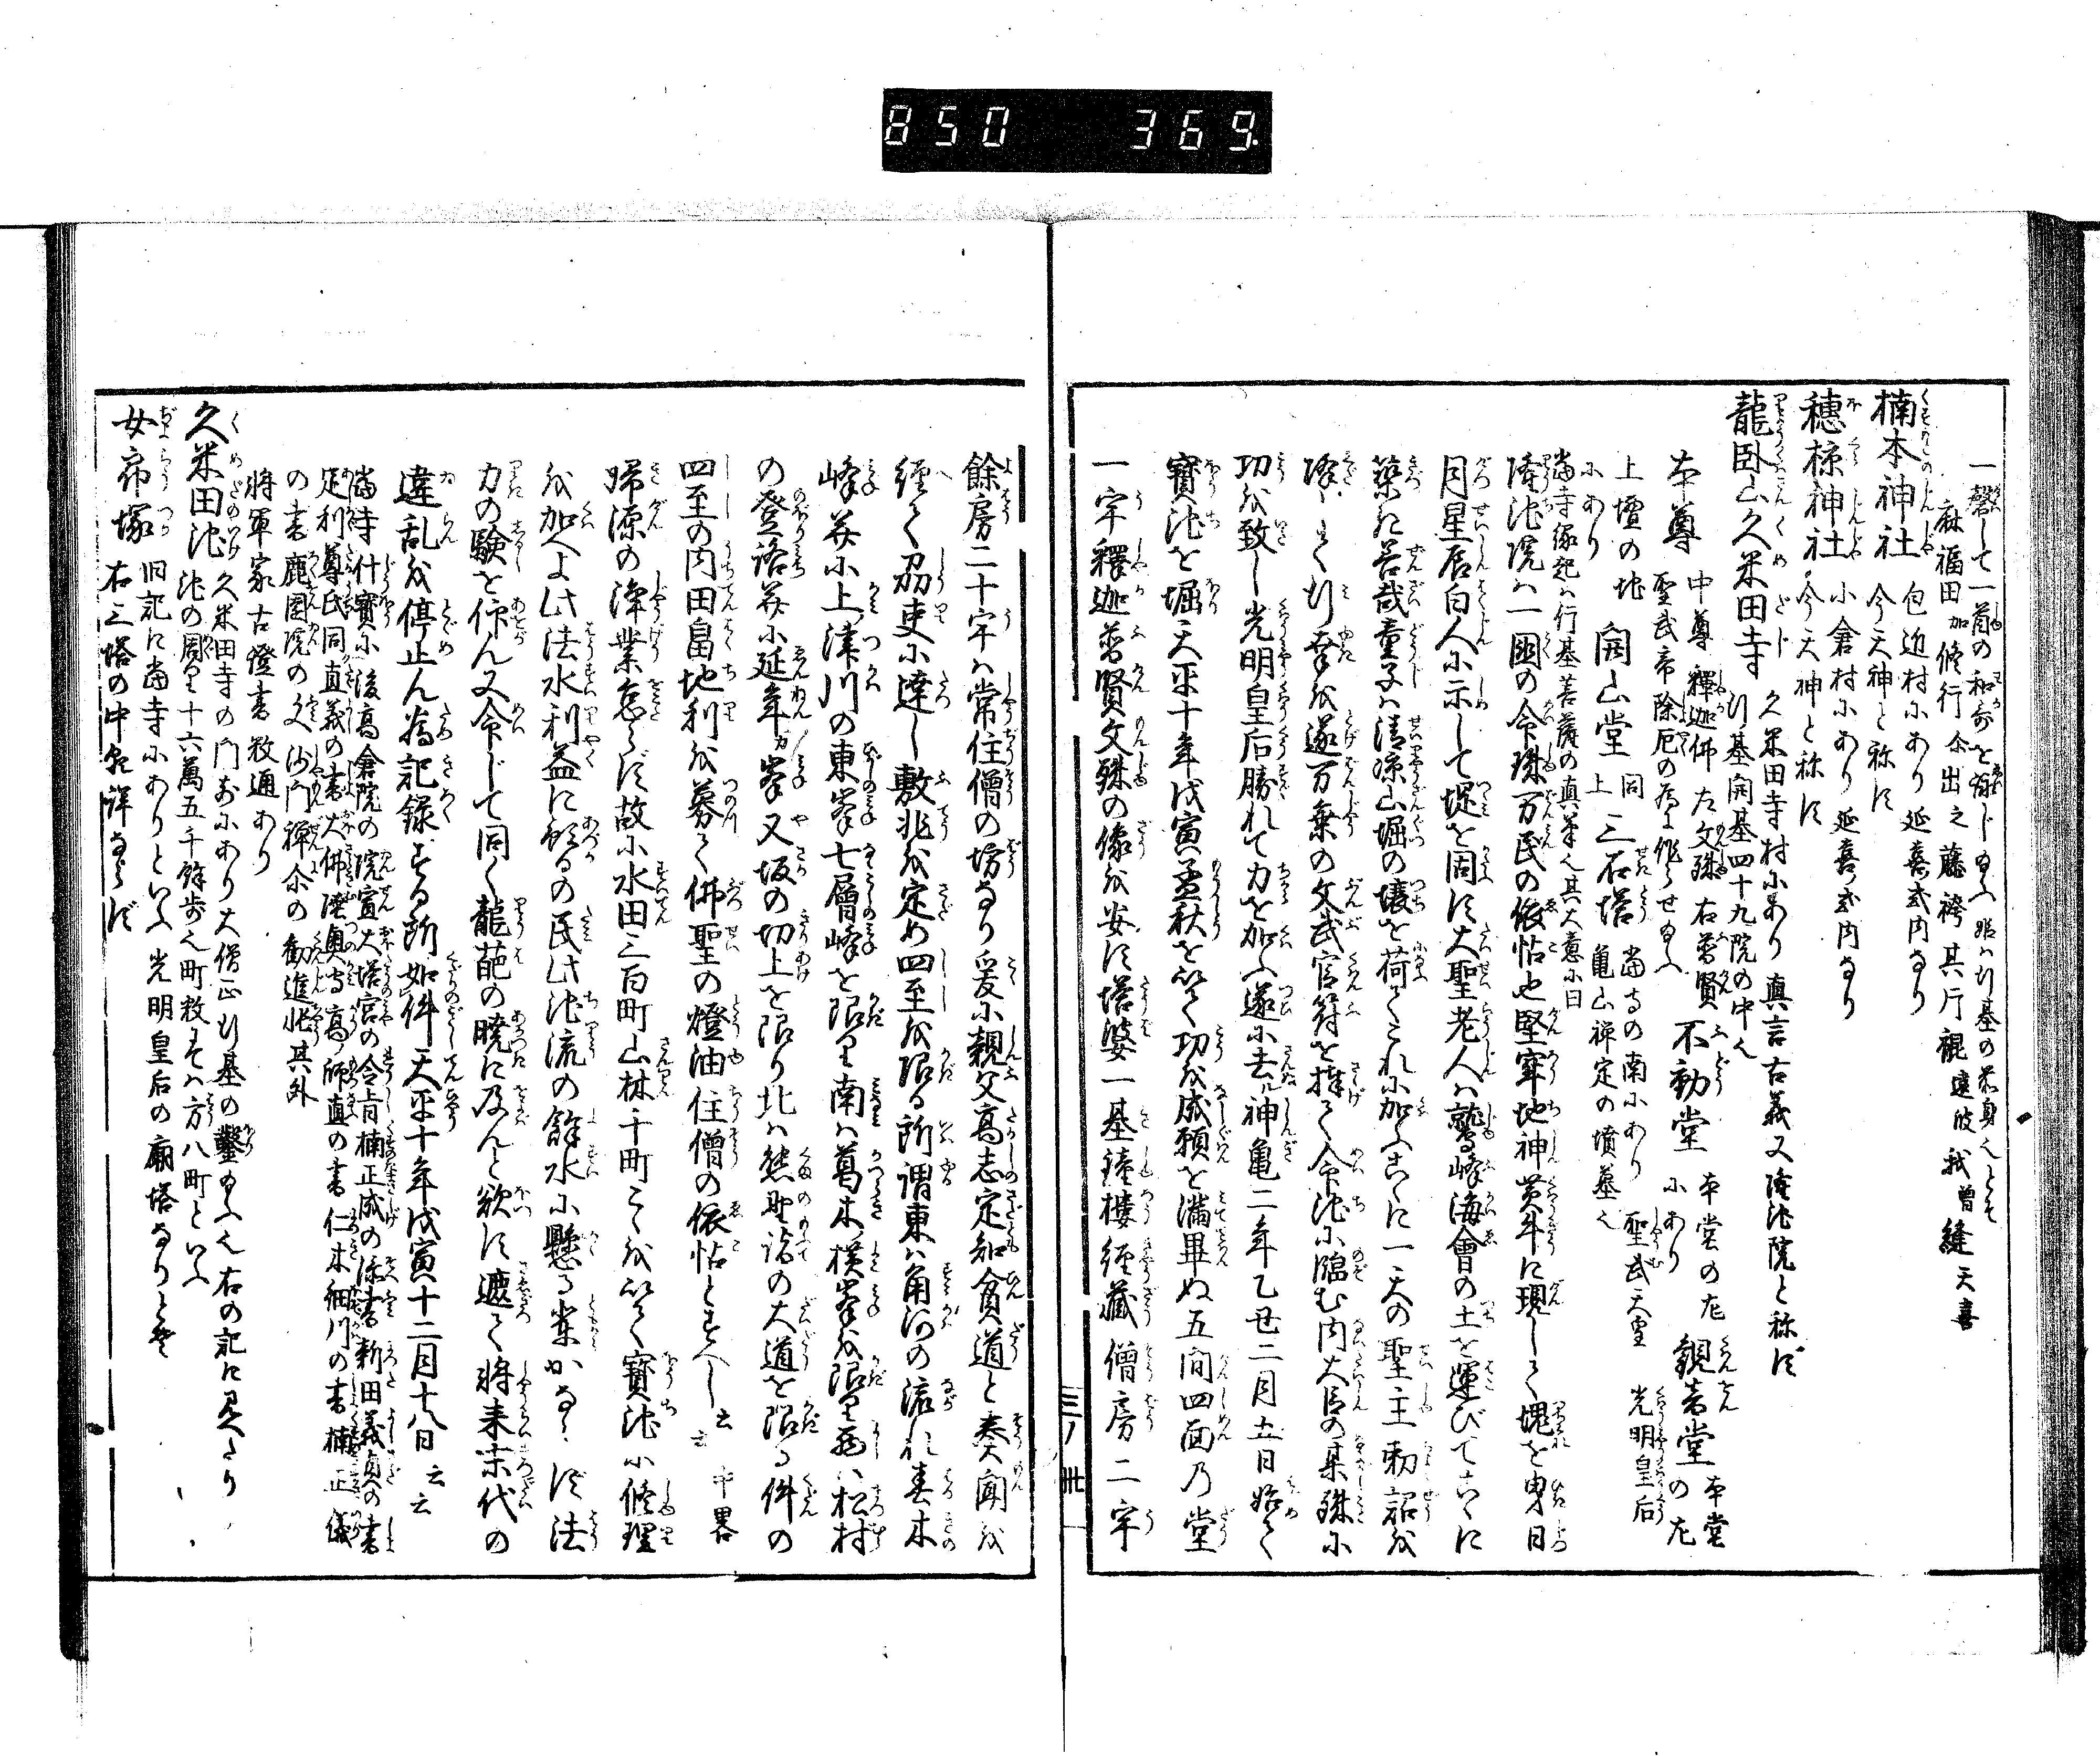 850 369.
一磬して一首の和哥を詠じ給ふ姫ハ行基の前身也とそ
麻福田加修行尓出之藤袴其片裩遠波我曽縫天喜
楠本神社 包近村にあり延喜式内なり
今天神と称す
穂椋神社 小倉村にあり延喜式内なり
今天神と称す
龍臥山久米田寺 久米田寺村にあり真言古義又隆池院と称す
行基開基四十九院の中也
本尊 中尊釋迦佛左文殊右普賢
聖武帝除厄の為に作らせ給ふ
不動堂 本堂の左にあり
観音堂 本堂の左
上壇の地にあり
開山堂 同上
三石塔 當寺の南にあり聖武天皇光明皇后
亀山禅定の墳墓也
當寺縁起ハ行基菩薩の真筆也其大意に曰
隆池院ハ一国の命珠万民の依怙也堅牢地神黄牛に現して塊を曳日
月星辰白人に示して堤を固す大聖老人ハ鷲峰海會の土を運びてこゝに
築た善哉童子ハ清涼山堀の壌を荷てこれに加ふこゝに一天の聖主勅詔を
降して行幸を遂万乗の文武官符を捧て命池に臨む内大臣の某殊に
功を致し光明皇后勝れて力を加ふ遂に去ル神亀二年乙丑二月五日始て
寳池を堀天平十年戊寅孟秋を以て功を成願を満畢ぬ五間四面乃堂
一宇釋迦普賢文殊の像を安す塔婆一基鐘樓經藏僧房二宇
三ノ卅一
餘房二十宇ハ常住僧の坊なり爰に親父高志定知貧道と奏聞を
經て刕吏に達し敷兆を定め四至を限る所謂東ハ角河の流れ春木
峰并に上津川の東峯七層峰を限り南ハ葛木横峯を限り西ハ松村
の登路并に延年峯又坂の切上を限り北ハ熊野詣の大道を限る件の
四至の内田畠地利を募て佛聖の燈油住僧の依怙とすへし云云中畧
帰源の浄業怠らす故に水田三百町山林千町こゝを以て寳池に修理
を加へよ此法水利益に預るの民此池流の餘水に懸る輩かならす法
力の験を仰ん又命じて同く龍葩の暁に及んと欲す遮て将来末代の
違乱を停止ん為記録する所如件天平十年戊寅十二月十八日云云
當寺什寳に後高倉院の院宣大塔宮の令旨楠正成の添書新田義貞の書
足利尊氏同直義の書大佛陸奥守高師直の書仁木細川の書楠正儀
の書鹿園院の文沙門禅尓の勧進帳其外
将軍家古證書数通あり
久米田池 久米田寺の門前にあり大僧正行基の鑿給ふ也右の記に見えたり
池の周り十六萬五千餘歩也町数にすれハ方八町といふ
女帝塚 旧記に當寺にありといふ光明皇后の廟塔なりとぞ
右三塔の中名詳ならず